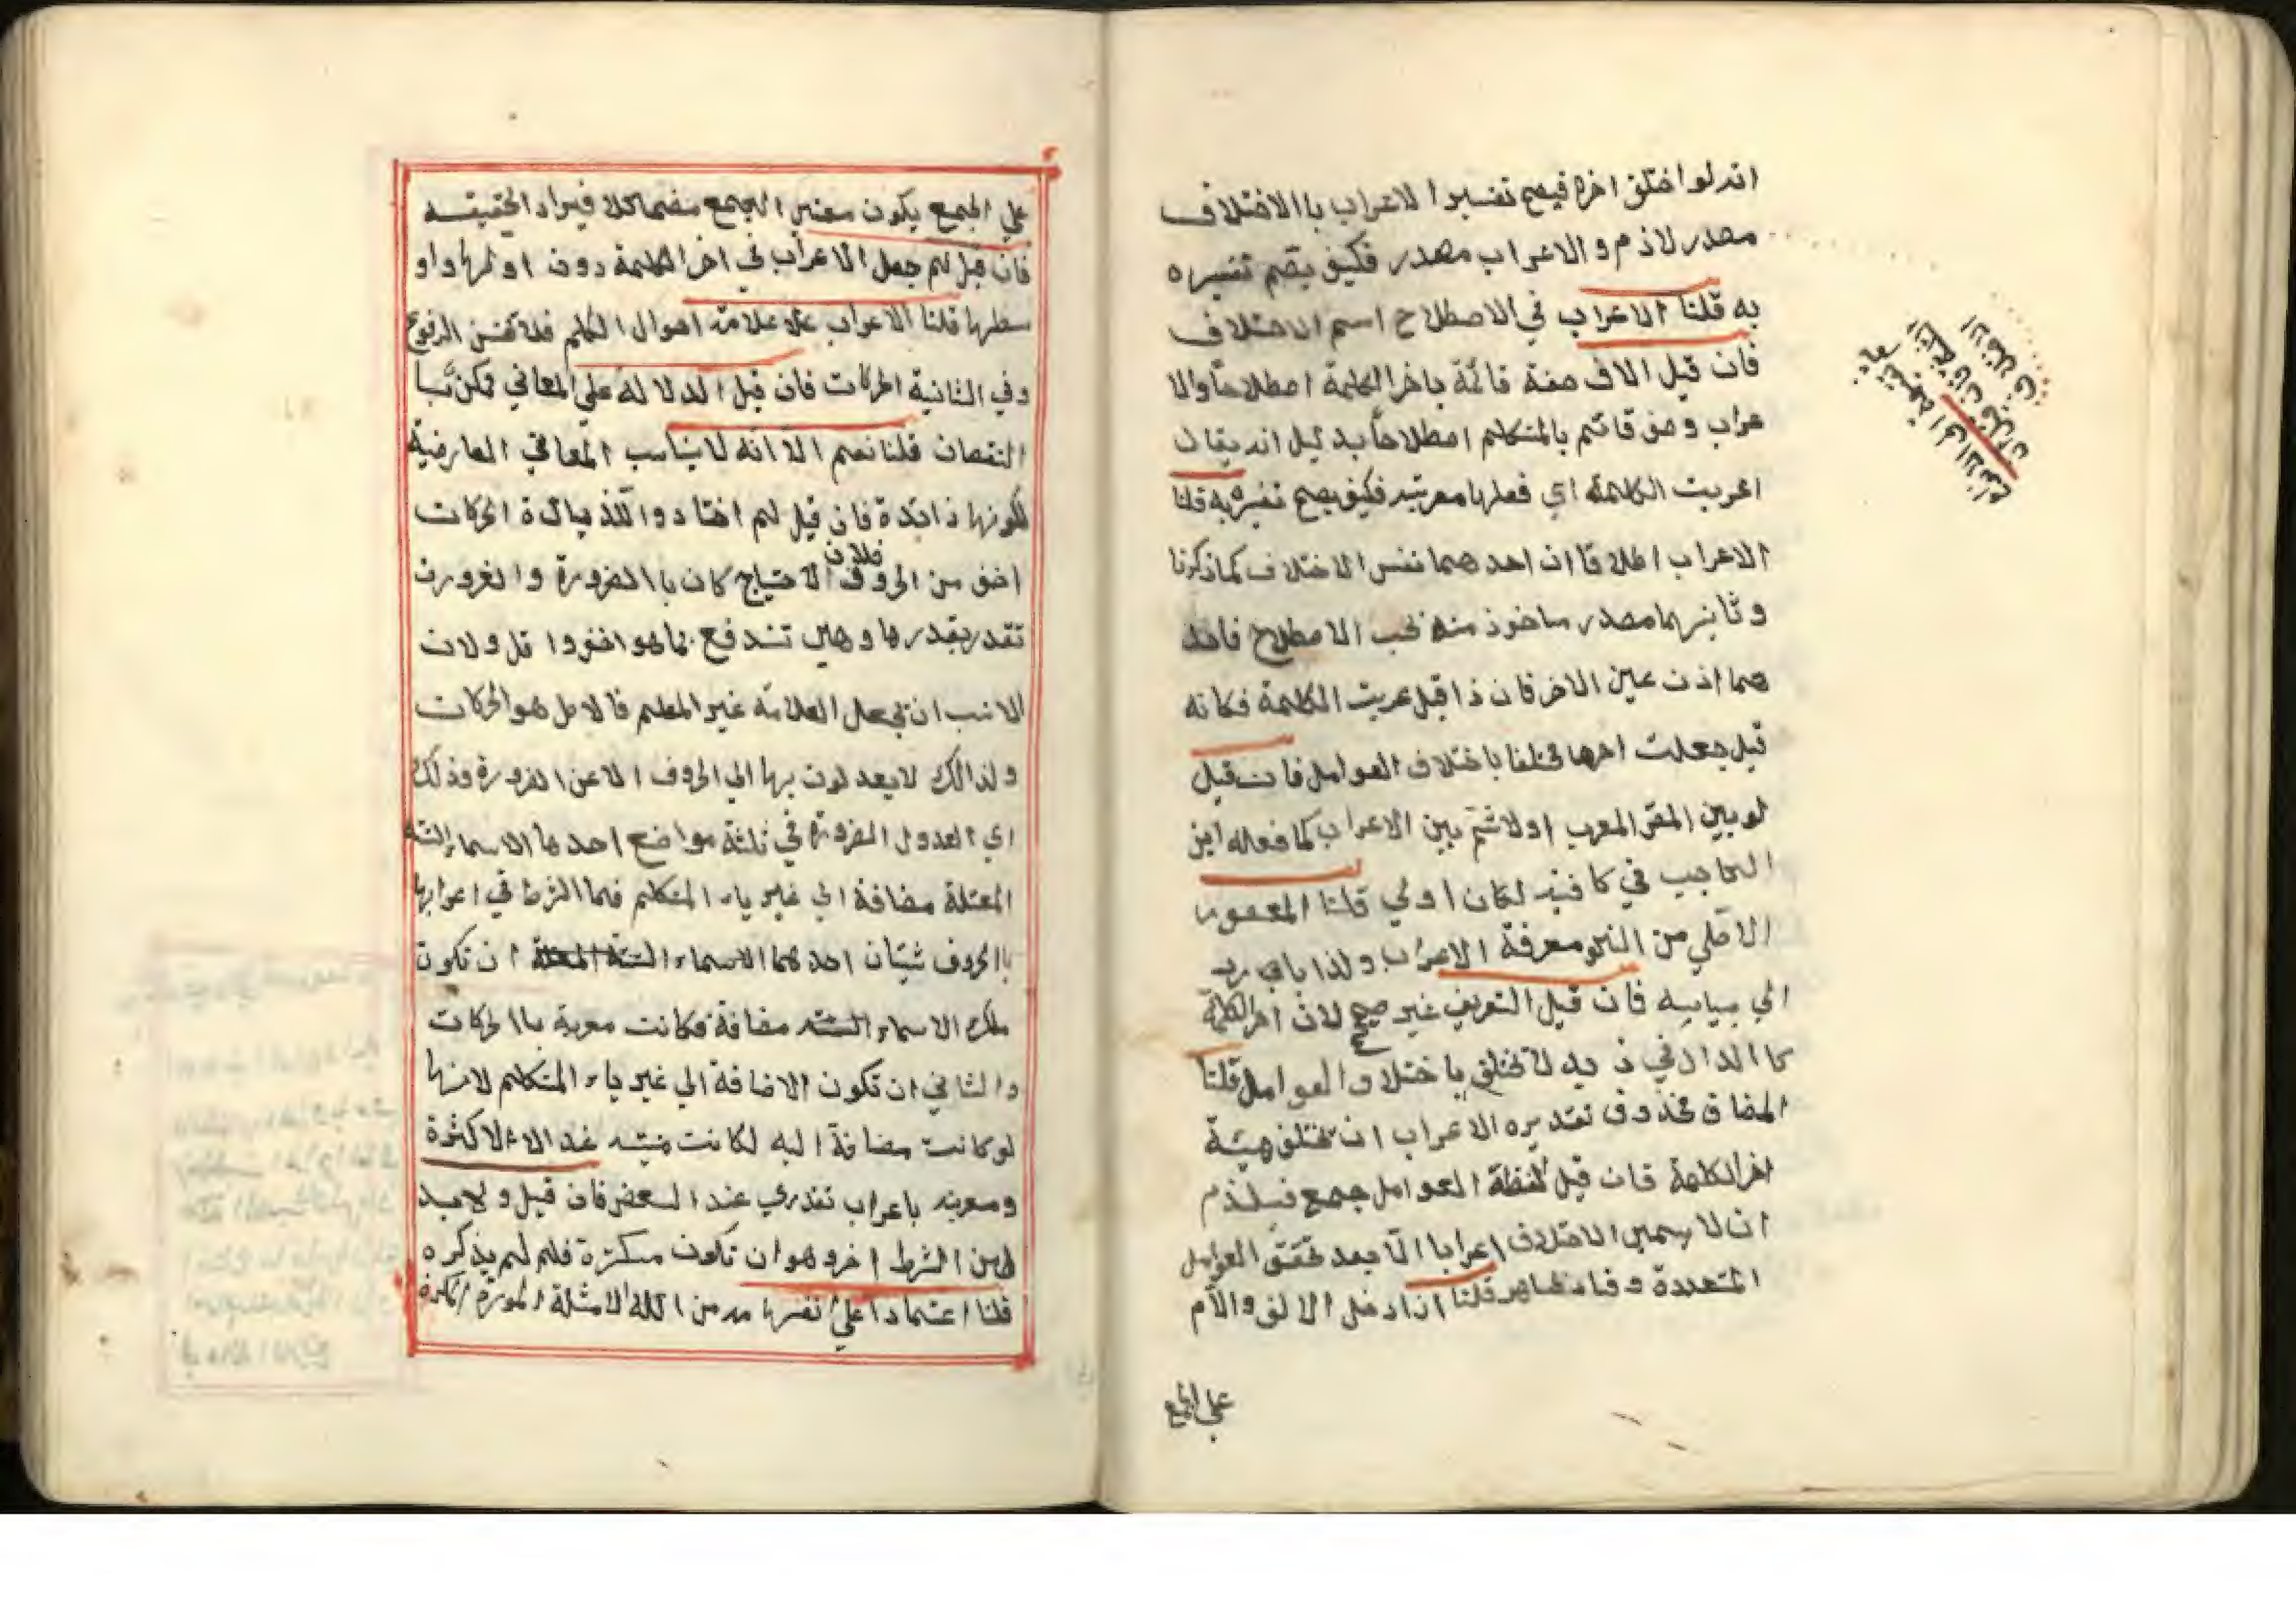 انه لو اختلق اخره فيصح تفسيرا لاعراب باالاختلاف
مصدر لازم و الاعراب مصدر فكيف يصم تفسيره
به قلنا الاعراب في الاصطلاح اسم الاختلاف
فان قيل الاف صفة قائمة باخرالكلمة اصطلاحاً والا
عراب وصف قائم بالمتكلم اصطلاحاً بدليل انه يقال
اعربت الكلمة اي فعلرها معربته فكيف يصح تفسيره به قلنا
الاعراب اطلاقا ان احدهما نفس الاختلاف كما ذكرنا
وثانيهما مصدر ماخوذ منه بحب الاصطلاح فاحد
هما اذن عين الاخر فان ذا قيل عربت الكلمة فكانه
قيل جعلت اخرها مختلفا باختلاف العوامل فان قيل
لو بين المعرب اولا ثم بين الاعراب كما فعله ابن
الحاجب في كافيه لكان اولي قلنا المقصور
الاصلي من النحو معرفة الاعراب ولذا
الي بيانيه فان قيل التعريف غير صحيح لان اخرالكلمة
كا الدال في ذ يد لا تختلق با ختلا و العوامل قلنا
المضاف مخذوف تقديره الاعراب ان تختلف هيئة
اخرالكلمة فان قيل لفظة العوامل جمع فيلذم
ان لا يسمي الاختلاف اعرابا الا بعد تحقق العوامل
المتعددة و فساد ظاهر قلنا اذا دخل الالف و الأم
علي الجمع
علي الجمع يكون معني الجمع مضمحلا فيراد الحقيقة
فان قيل لم جعل الاعراب في اخر الكلمة دون اولها و او
سطها قلنا الاعراب علا علامة احوال الكلم
وفي الثانية الحركات فان قيل الدلالة علي المعاني
النقصان قلنا نعم الا انه لا يناسب المعاني العارضية
لكونها ذائدة فان قيل لم اختادوا للذيادة الحركات
اخف من الحروف فلان الاحتياج كان باالضرورة و الضرورت
تقدر بقدرها وهي تندفع بما هو اخف وا قل و لان
الانسب ان يجعل العلامة غير المعلم فالاصل هو الحركات
ولذالك لا يعد لون بها الي الحروف الا عن الضرورة وذلك
اي العدول المضرورة في ثلثة مواضع احدها الاسماء الستة
المعتلة مضافة الي غير ياء المتكلم فما الشرط في اعرابها
باالحروف شيئان احدهما الاسماء الستة المعتلة ان تكون
ملك الاسماء الستة مضافة فكانت معربة باالحركات
والثاني ان تكون الاضافة الي غير ياء المتكلم لانها
لو كانت مضافة اليه لكانت مبنيه عند الا الاكثرة
ومعربه باعراب تقدري عند البعض فان قيل و لابد
لهن الشرط اخر وهو ان تكون مكبرة فلم لم يذكره
قلنا اعتمادا علي انفسها